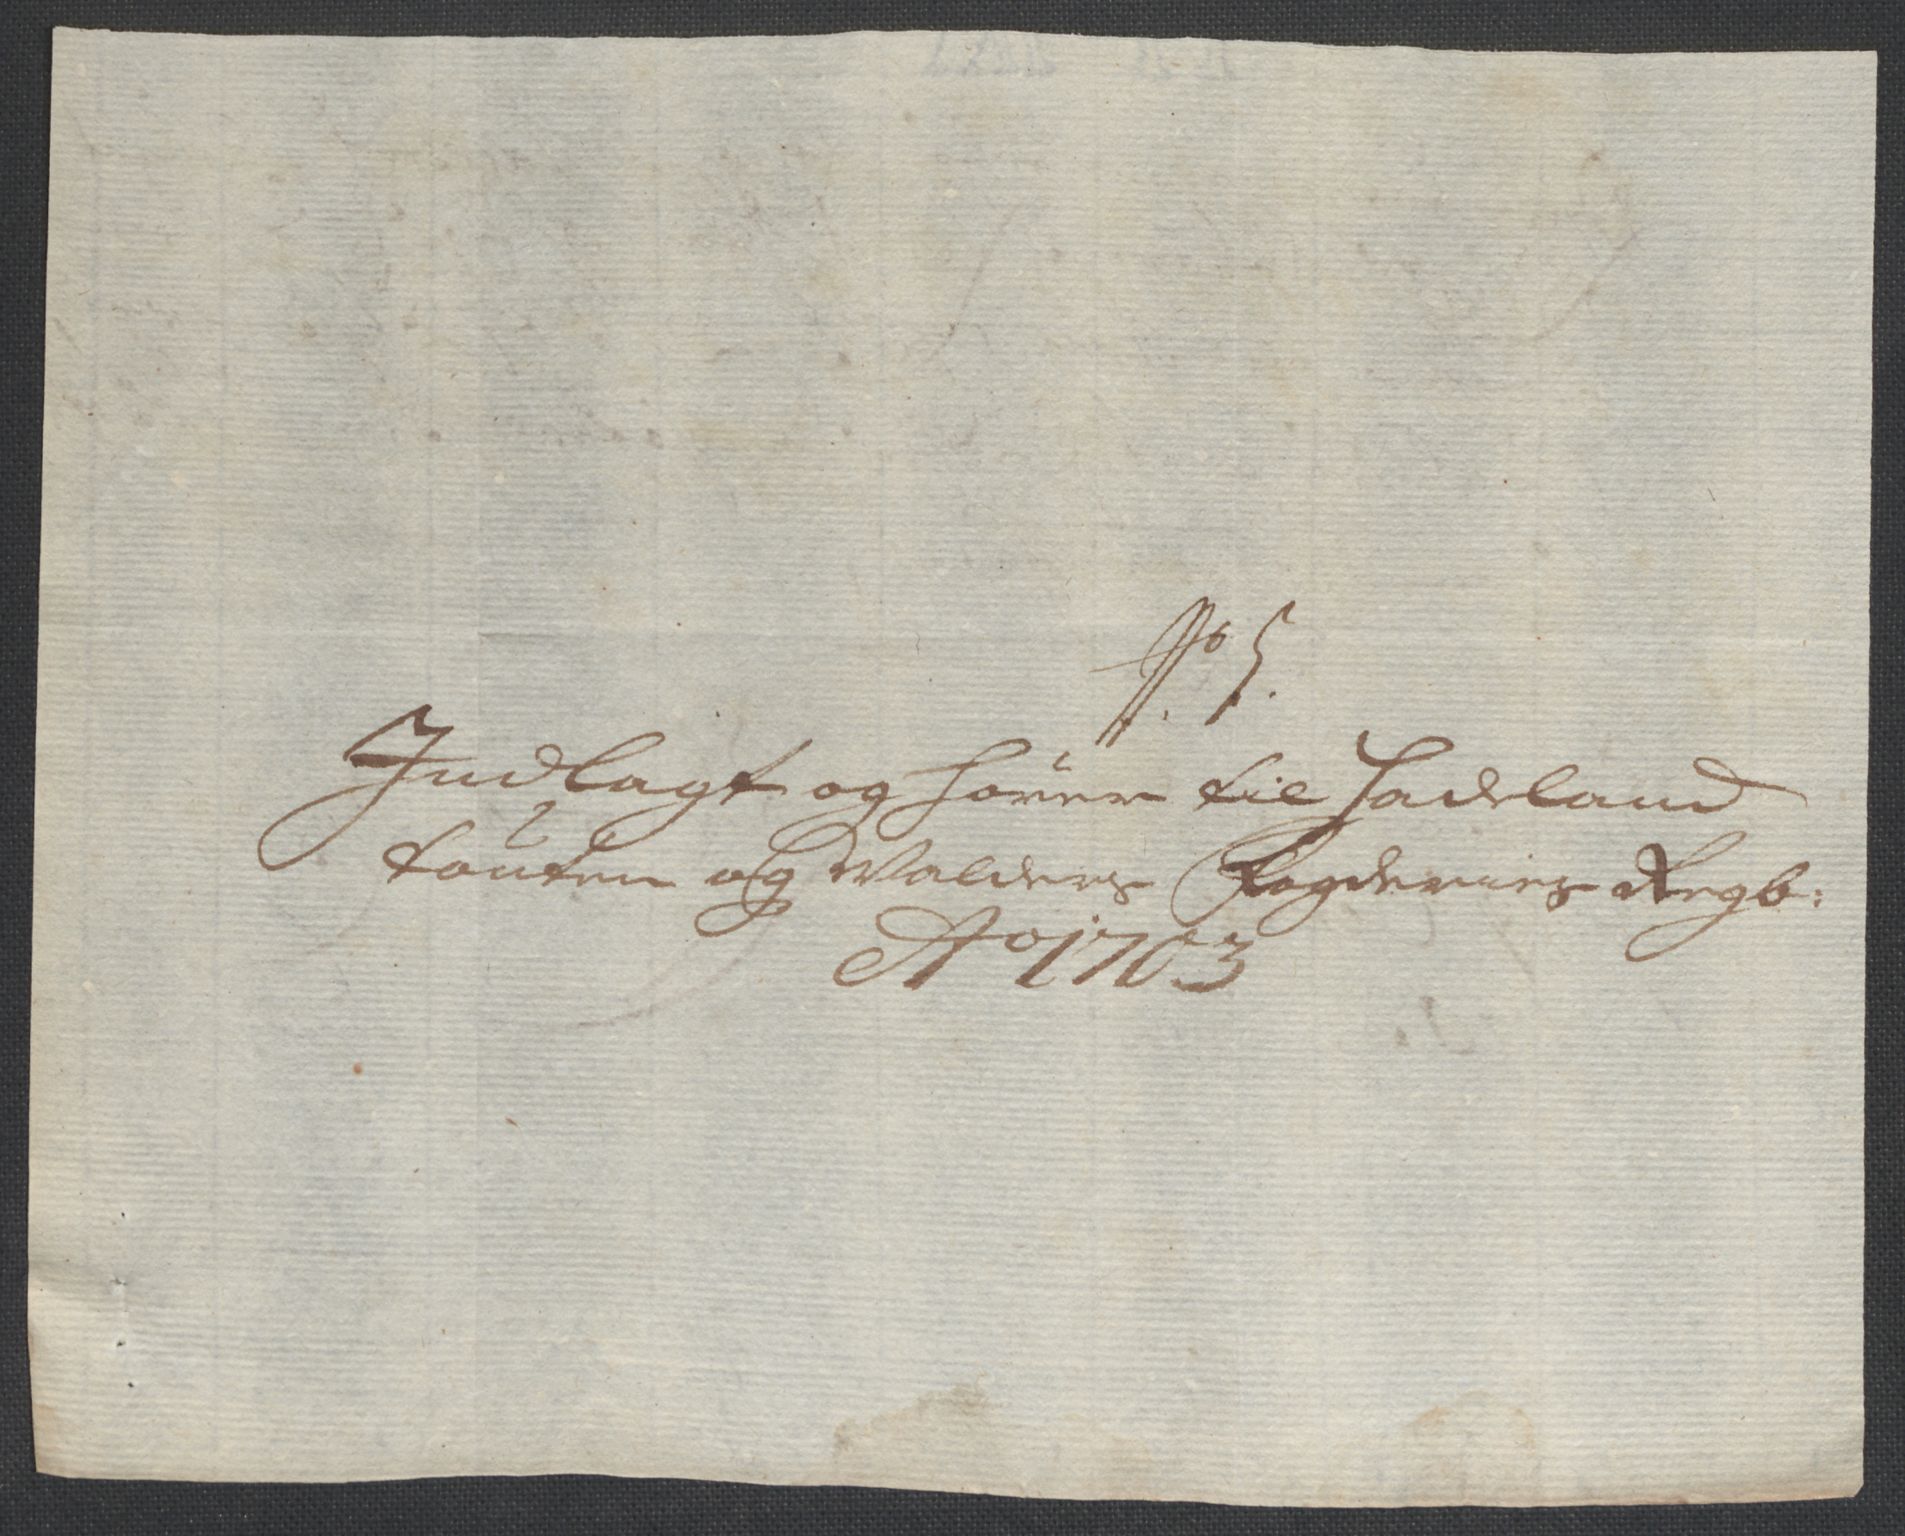 No 5.
Indlagt og hører til Hadeland
Toutten og Walders Fogderies Regb:
Ao 1703